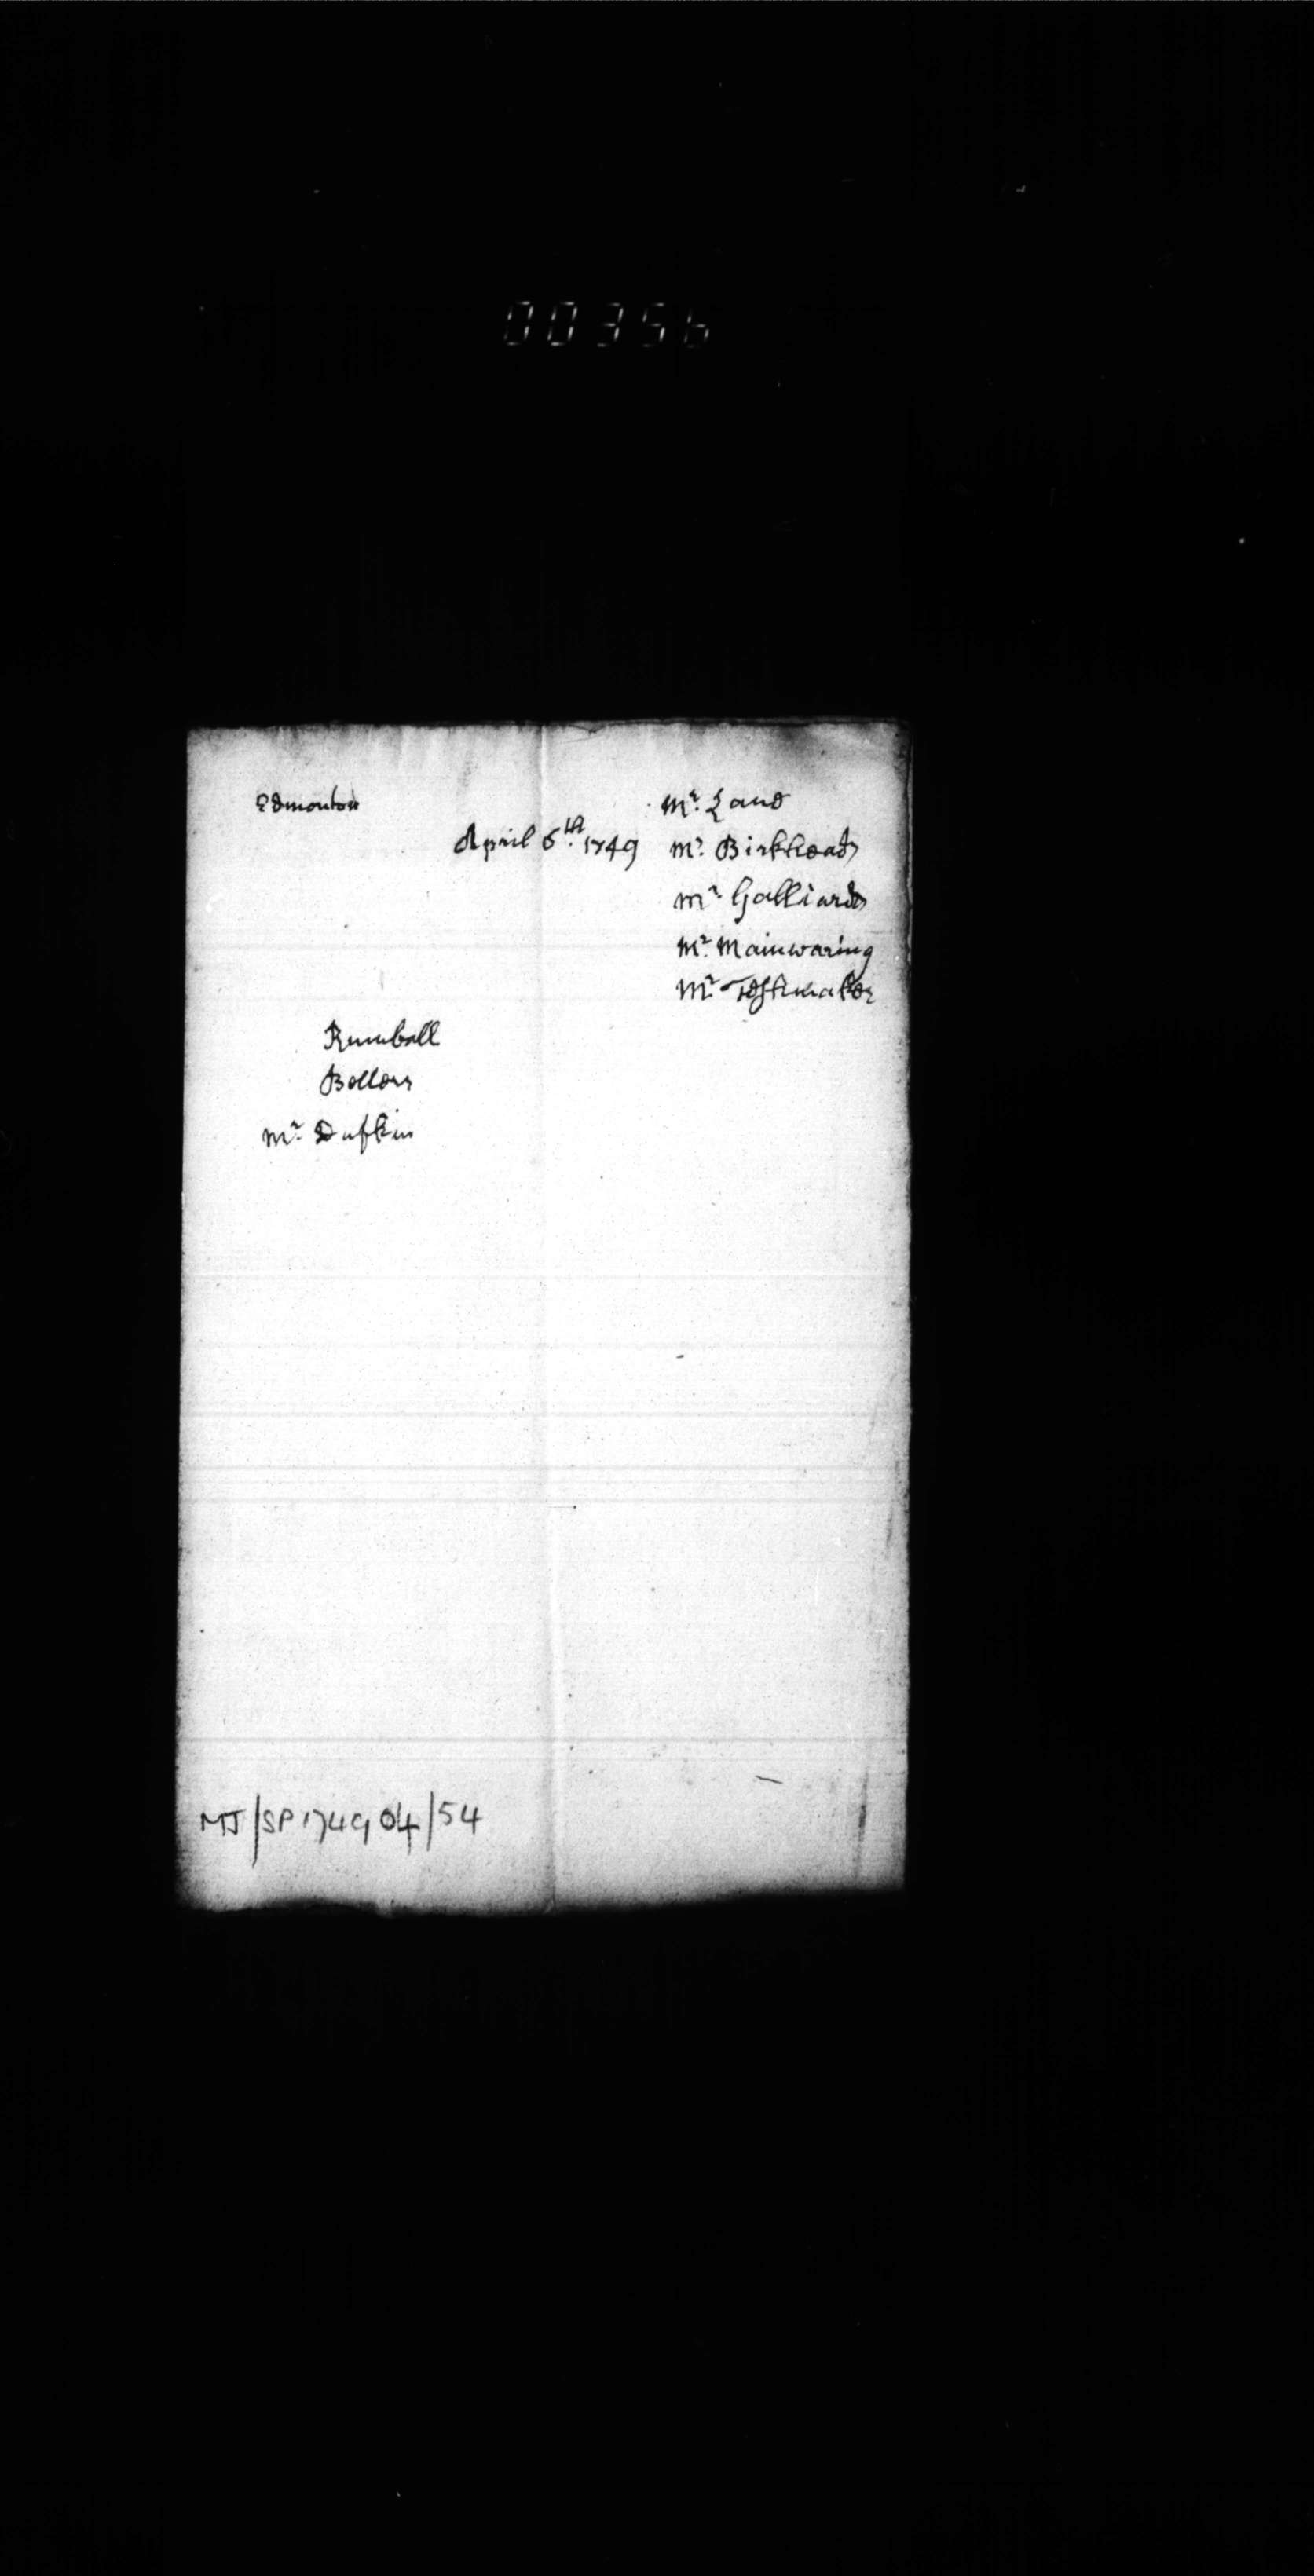 00356
Edmonton
Mr. Land
April 6th. 1749
Mr. Birkhead
Mr. Galliard
Mr. Mainwaring
Mr. Teshmaker
Rumball
Bellers
Mr. Dufkin
MJ/SP 1749 04/54